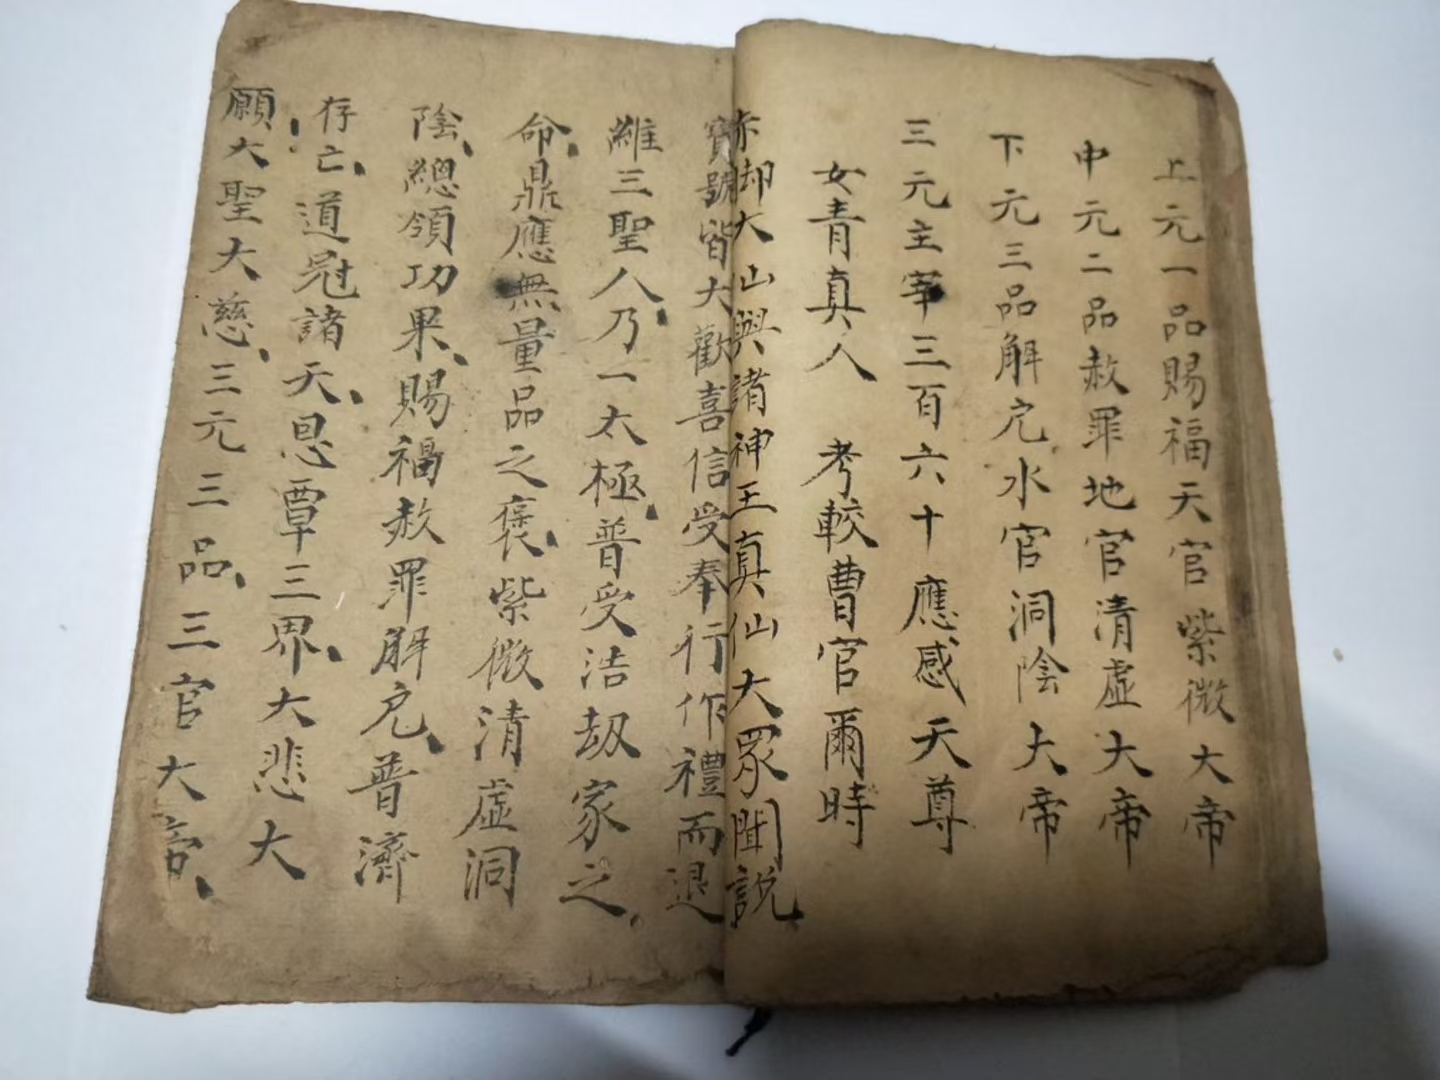 上元一品賜福天官紫微大帝
中元二品赦罪地官清虛大帝
下元三品解厄水官洞陰大帝
三元主宰三百六十應感天尊
女青真人　考較曹官爾時
赤脚大仙與諸神王真仙大眾聞說
寶號皆大歡喜信受奉行作禮而退
維三聖人、乃一太極、普受浩劫家之、
命、鼎應無量品之褒、紫微清虛洞
陰、總領功果、賜福赦罪解厄、普濟
存亡、道冠諸天、恩覃三界、大悲大
願、大聖大慈、三元三品、三官大帝、